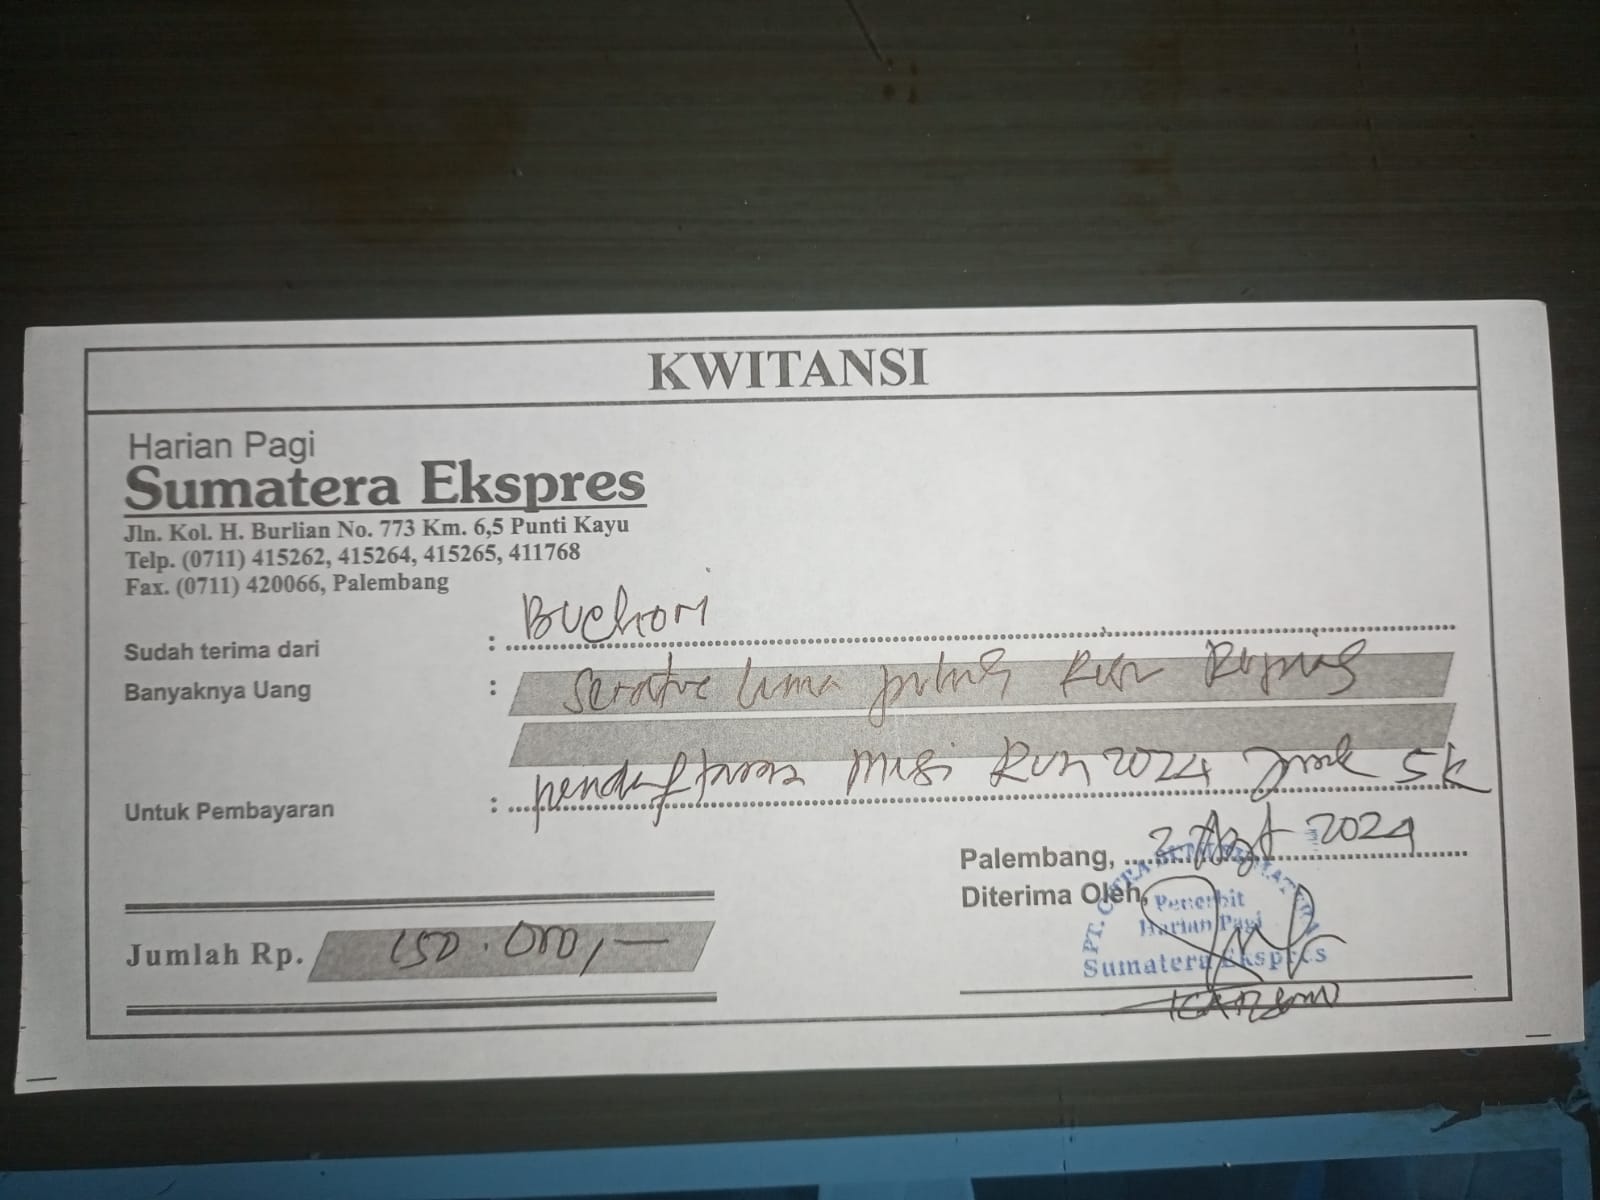 KWITANSI
Harian Pagi
Sumatera Ekspres
Jln. Kol. H. Burlian No. 773 Km. 6,5 Punti Kayu
Telp. (0711) 415262, 415264, 415265, 411768
Fax. (0711) 420066, Palembang
Sudah terima dari : Buchori
Banyaknya Uang : Seratus lima puluh Ribu Rupiah
Untuk Pembayaran : pendaftaran Musi Run 2024 5K
Palembang, 2 Agt 2024
Diterima Oleh,
Penerbit
Harian Pagi
Sumatera Ekspres
Jumlah Rp. 150.000,-